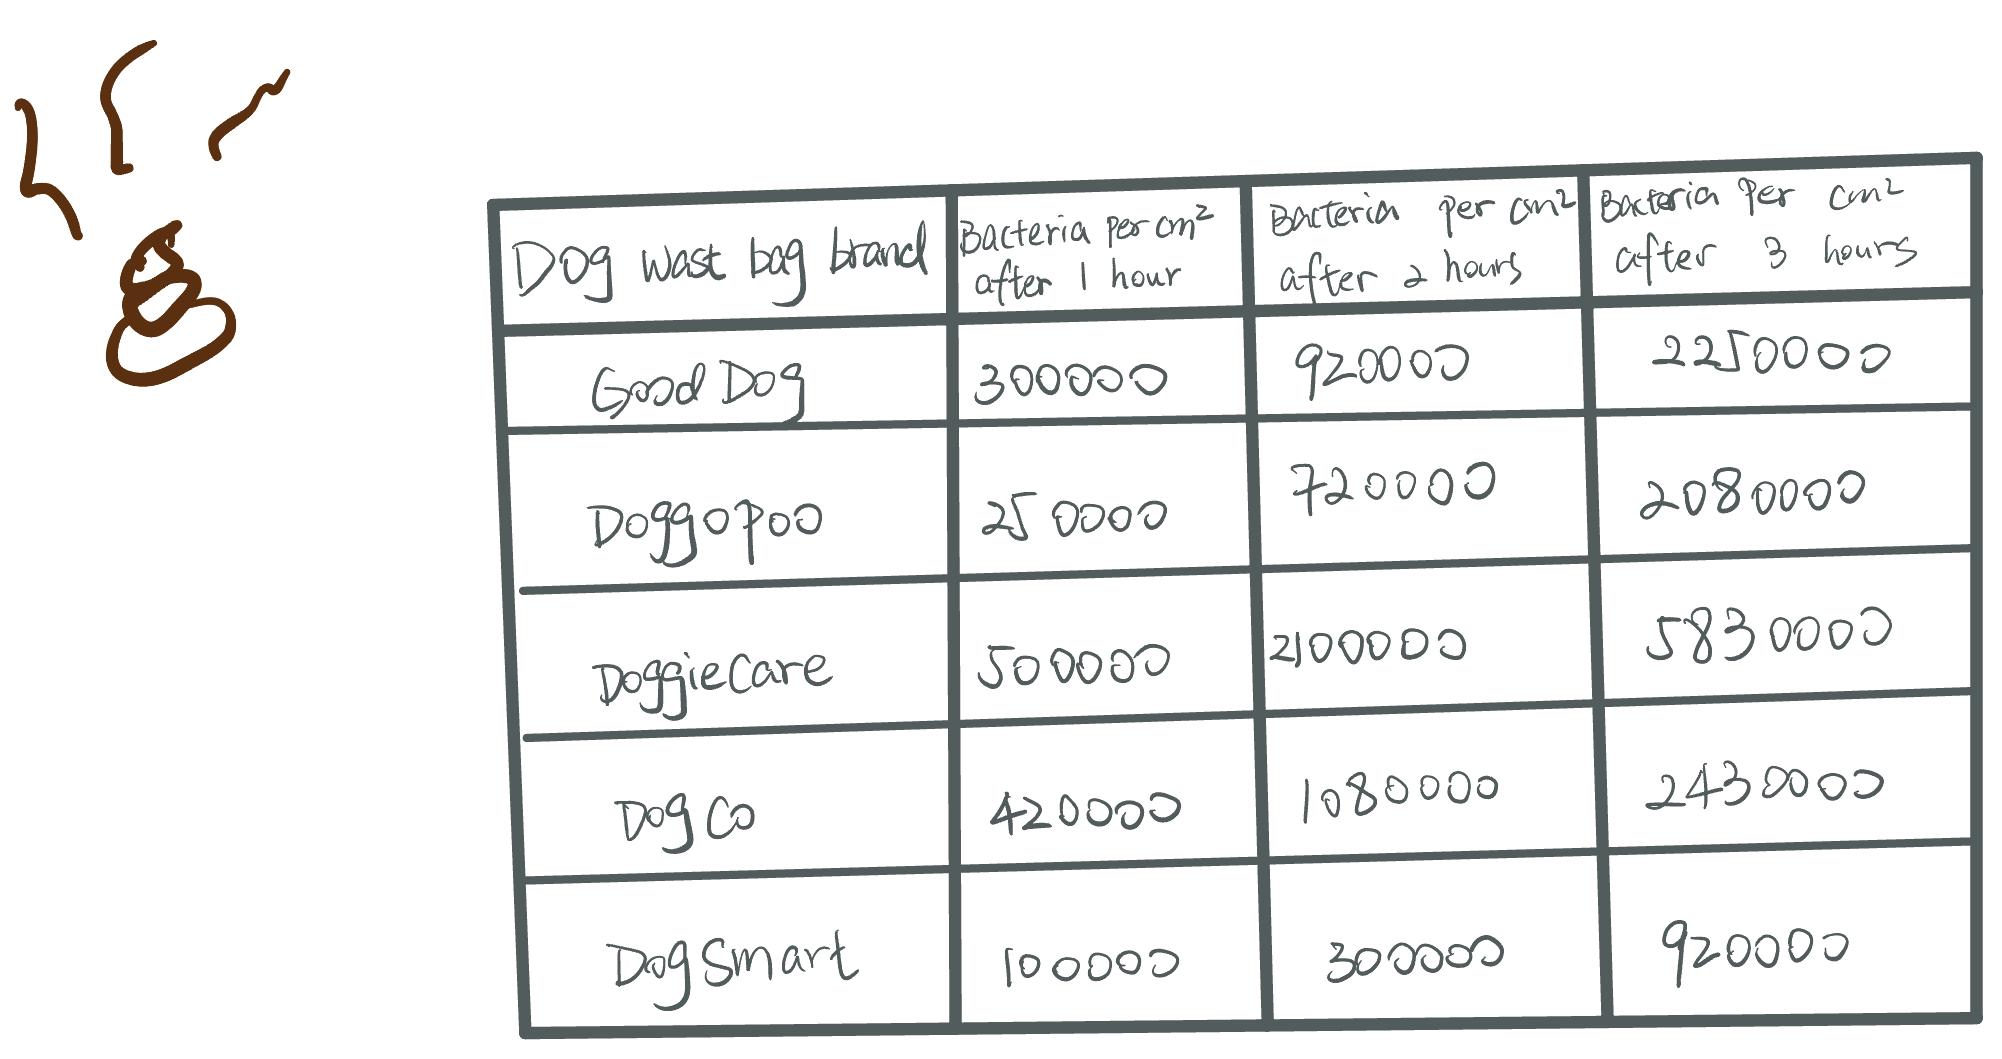 Dog wast bag brand
Bacteria per cm²
after 1 hour
Bacteria per cm²
after 2 hours
Bacteria Per cm²
after 3 hours
Good Dog
300000
920000
2250000
Doggopoo
250000
720000
2080000
DoggieCare
500000
2100000
5830000
Dog Co
420000
1080000
2430000
Dog Smart
100000
300000
920000